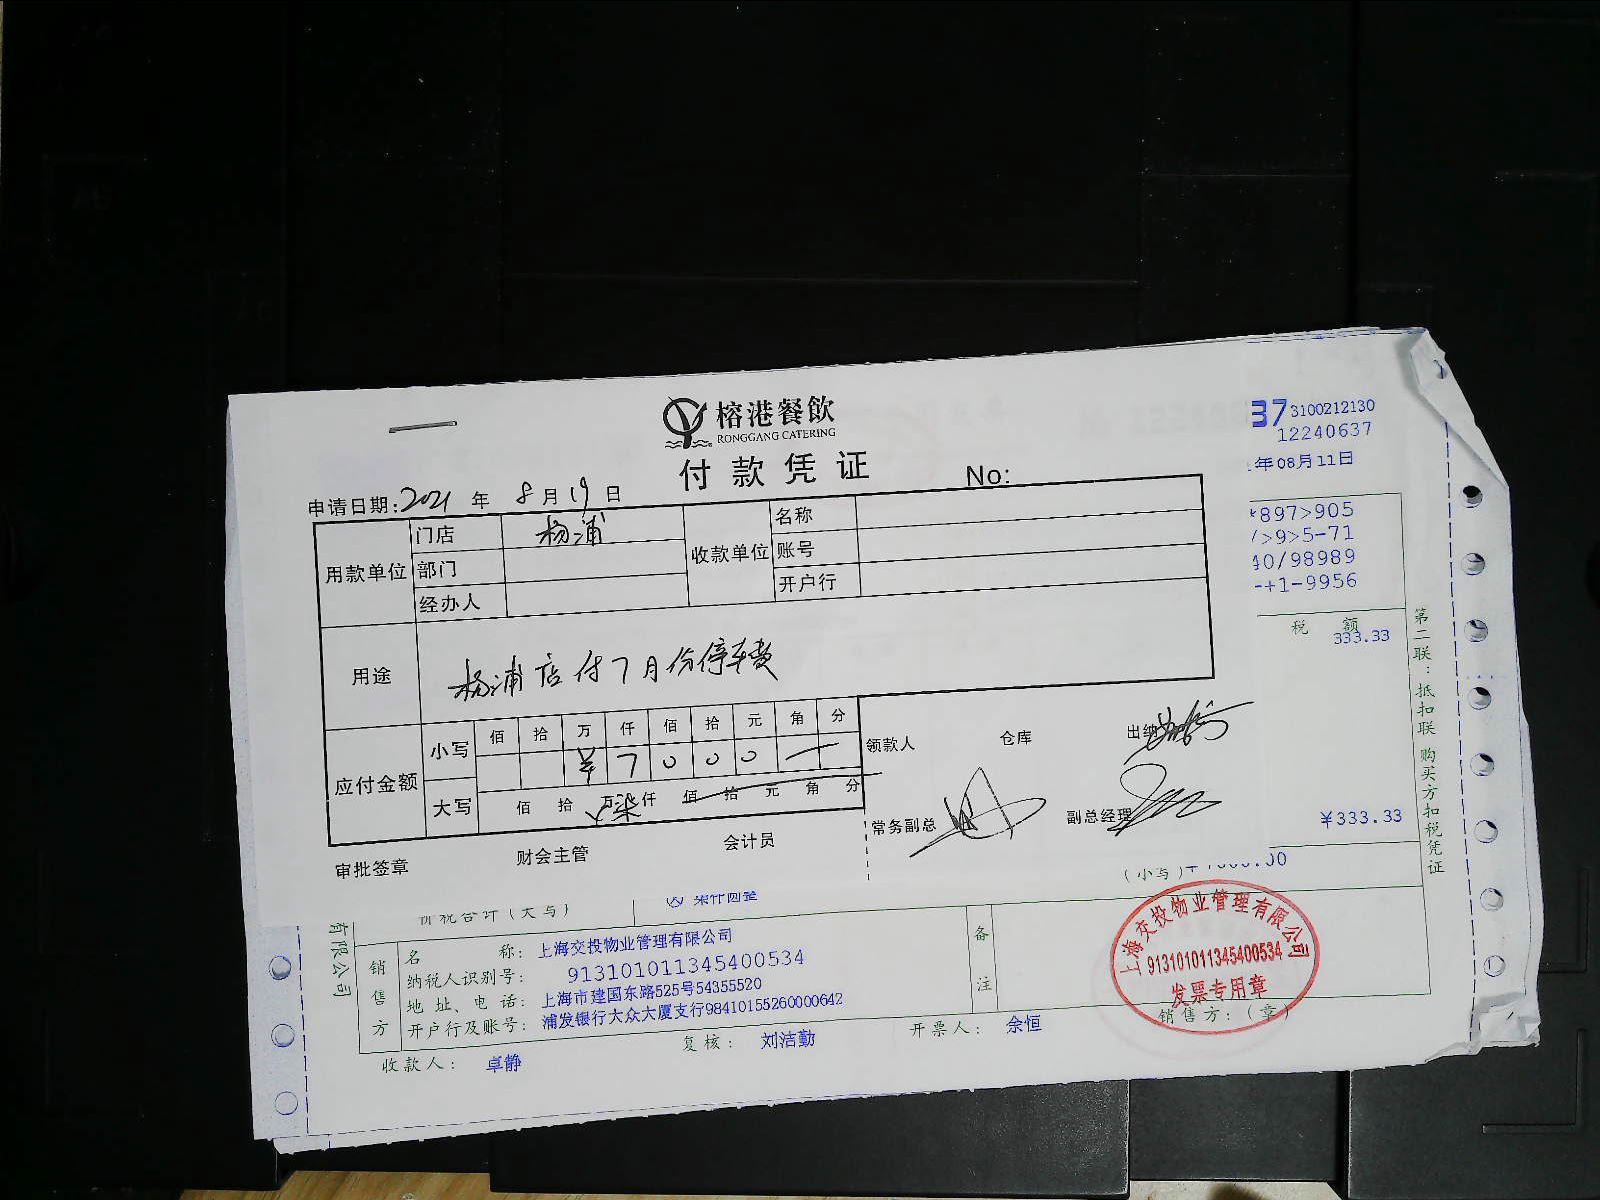 榕港餐飲
RONGGANG CATERING
付款凭证
No:
申请日期:2021年8月19日
用款单位 门店 杨浦
部门
经办人
收款单位 名称
账号
开户行
用途 杨浦店付7月份停车费
应付金额 小写 佰 拾 万 仟 佰 拾 元 角 分
¥ 7 0 0 0 —
大写 佰 拾 万 柒 仟 佰 拾 元 角 分
领款人 仓库 出纳
常务副总 副总经理
审批签章 财会主管 会计员
37 3100212130
12240637
年08月11日
897>905
/>9>5-71
40/98989
-+1-9956
税 额
333.33
¥333.33
第二联：抵扣联 购买方扣税凭证
价税合计(大写)
柒仟圆整
(小写)
有限公司
销售方
名 称: 上海交投物业管理有限公司
纳税人识别号: 913101011345400534
地 址、电 话: 上海市建国东路525号54355520
开户行及账号: 浦发银行大众大厦支行98410155260000642
备注
收款人: 卓静
复核: 刘洁勤
开票人: 余恒
销售方:(章)
上海交投物业管理有限公司
913101011345400534
发票专用章